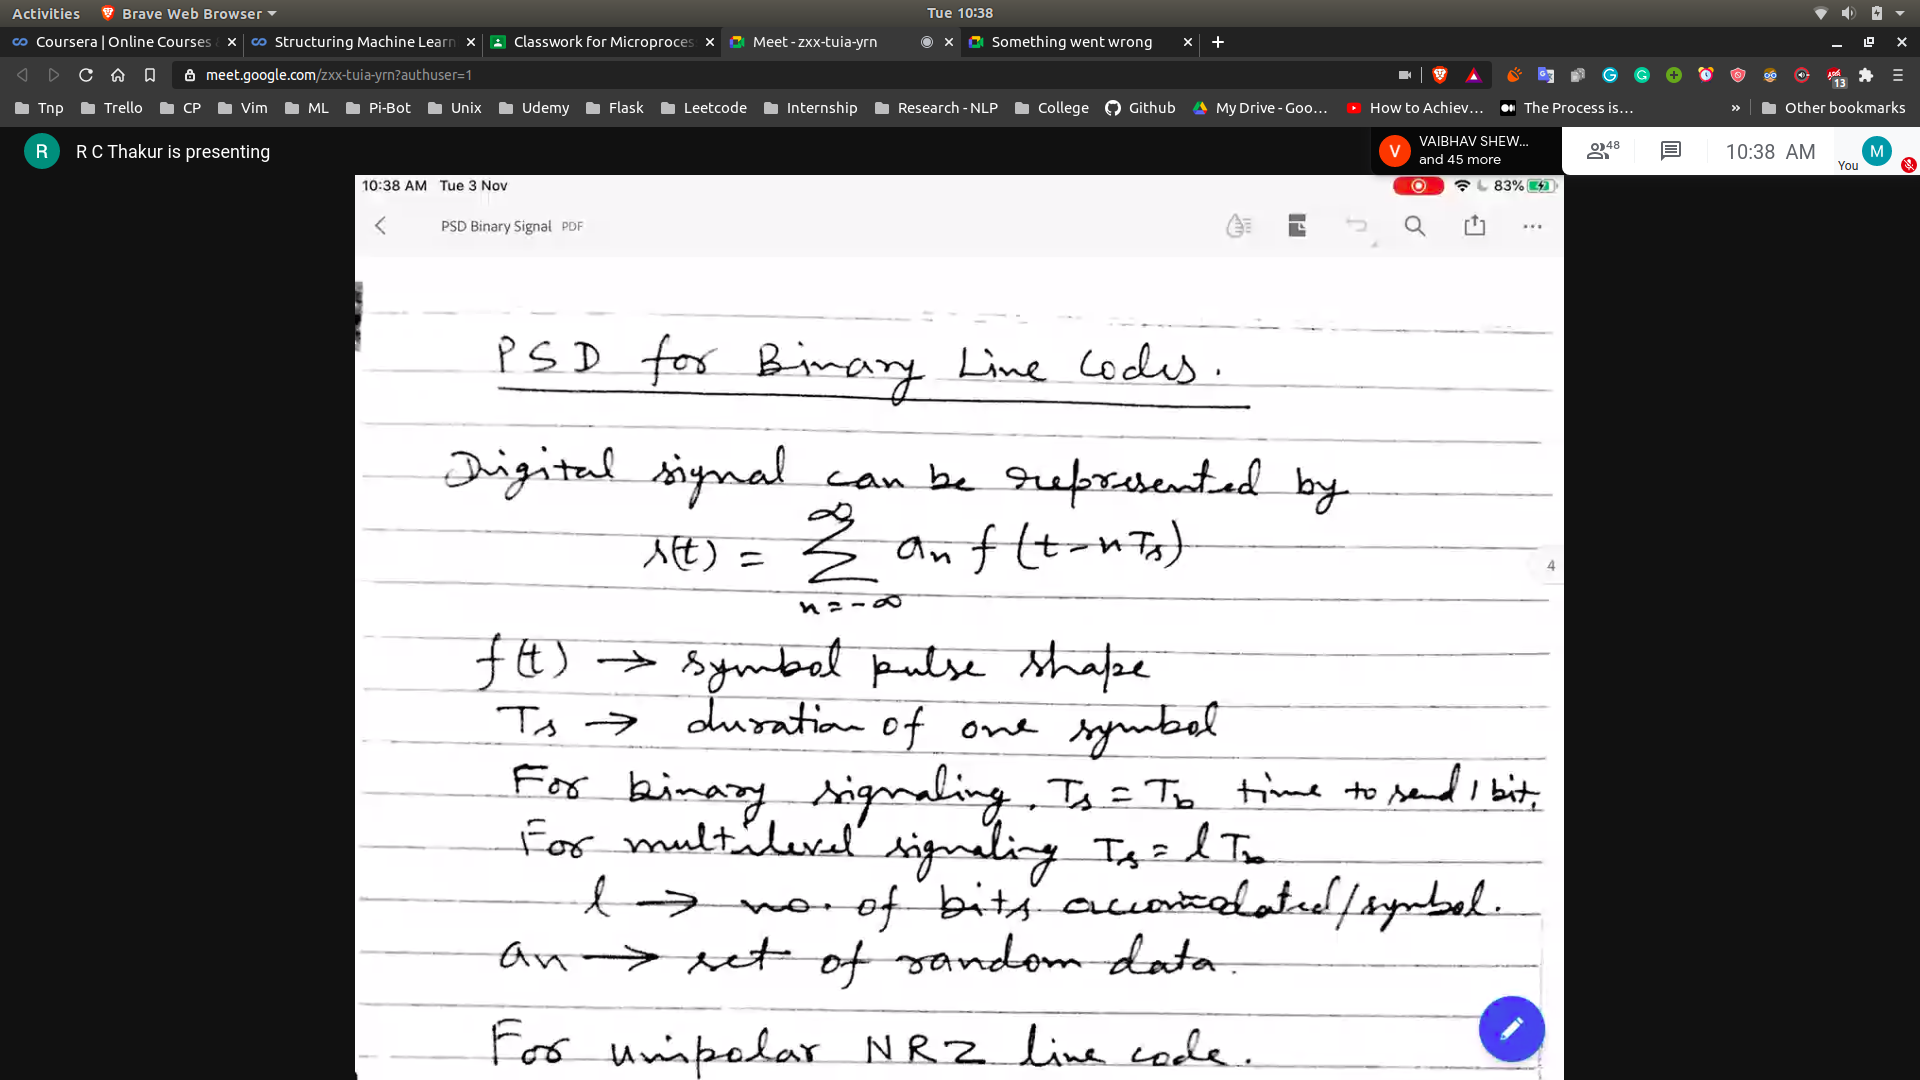 Activities Brave Web Browser Tue 10:38
Coursera | Online Courses & Structuring Machine Learn Classwork for Microproces Meet - zxx-tuia-yrn Something went wrong
meet.google.com/zxx-tuia-yrn?authuser=1 13
Tnp Trello CP Vim ML Pi-Bot Unix Udemy Flask Leetcode Internship Research - NLP College Github My Drive - Goo... How to Achiev... The Process is... » Other bookmarks
R R C Thakur is presenting
V VAIBHAV SHEW...
and 45 more
48 10:38 AM You M
10:38 AM Tue 3 Nov 83%
PSD Binary Signal PDF
PSD for Binary Line Codes.
Digital signal can be represented by
s(t) = ∑ an f(t-nTs)
∞
n=-∞
4
f(t) → symbol pulse shape
Ts → duration of one symbol
For binary signaling, Ts = Tb time to send 1 bit.
For multilevel signaling Ts = l Tb
l → no. of bits accomodated/symbol.
an → set of random data.
For unipolar NRZ line code.